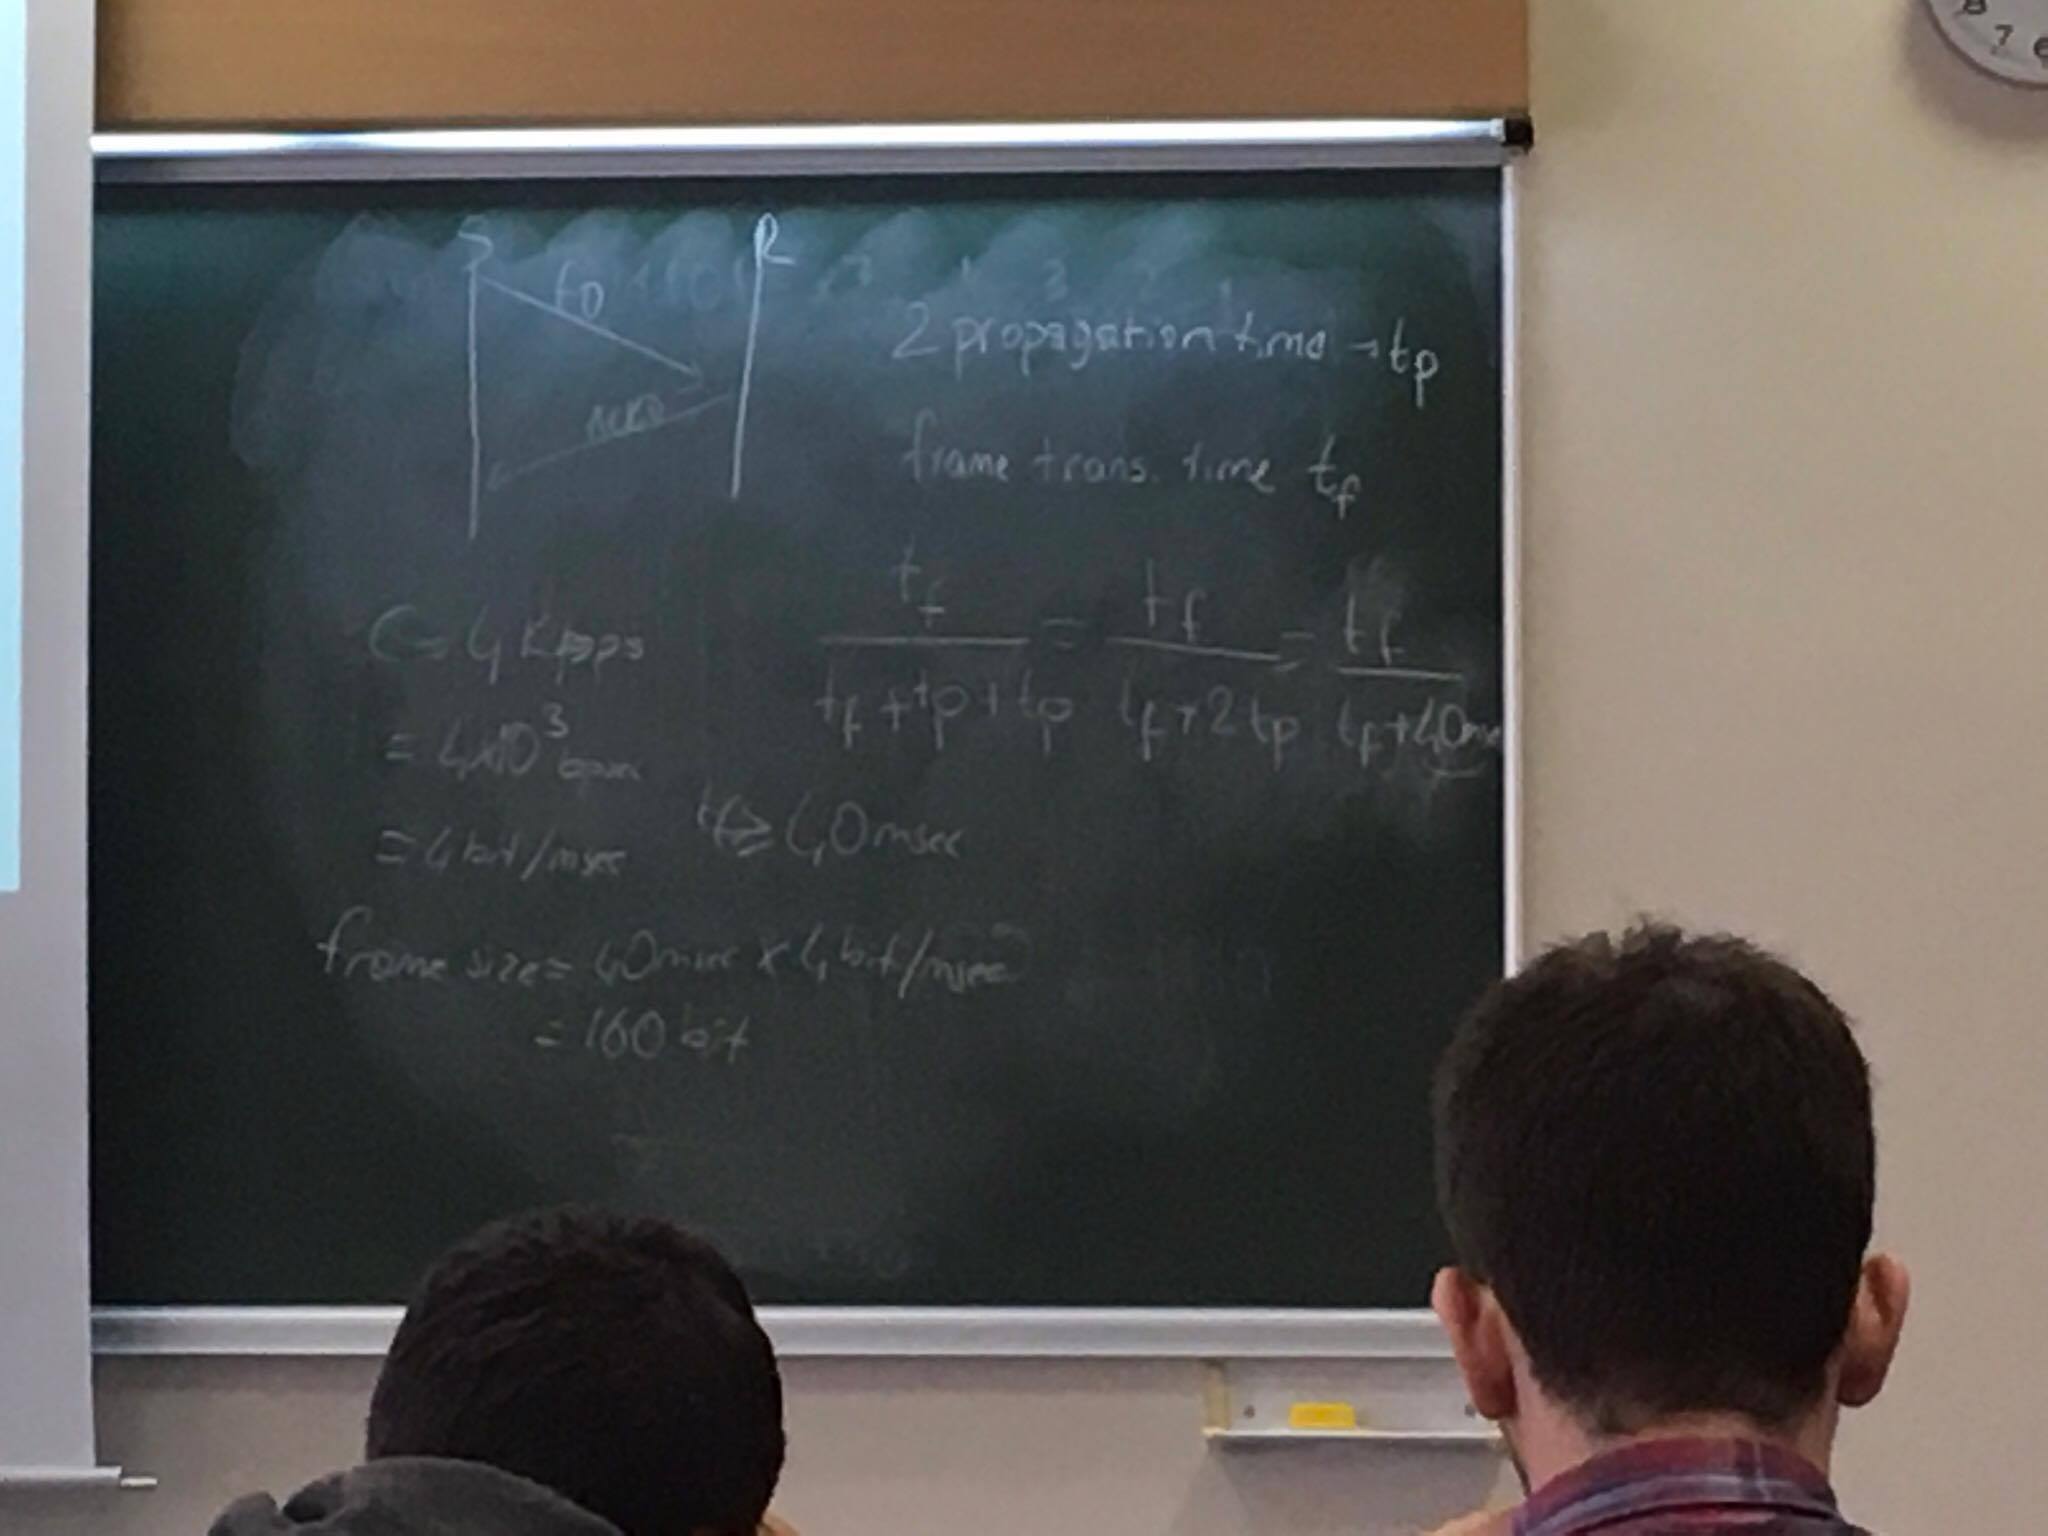 S R
f0
ACK0
2 propagation time → tp
frame trans. time tf
tf / tf + tp + tp = tf / tf + 2tp = tf / tf + 40
C = 4
= 4x10³
= 4 bit/msec
tf ≥ 40msec
frame size = 40msec x 4 bit/msec
= 160 bit
8
7
6